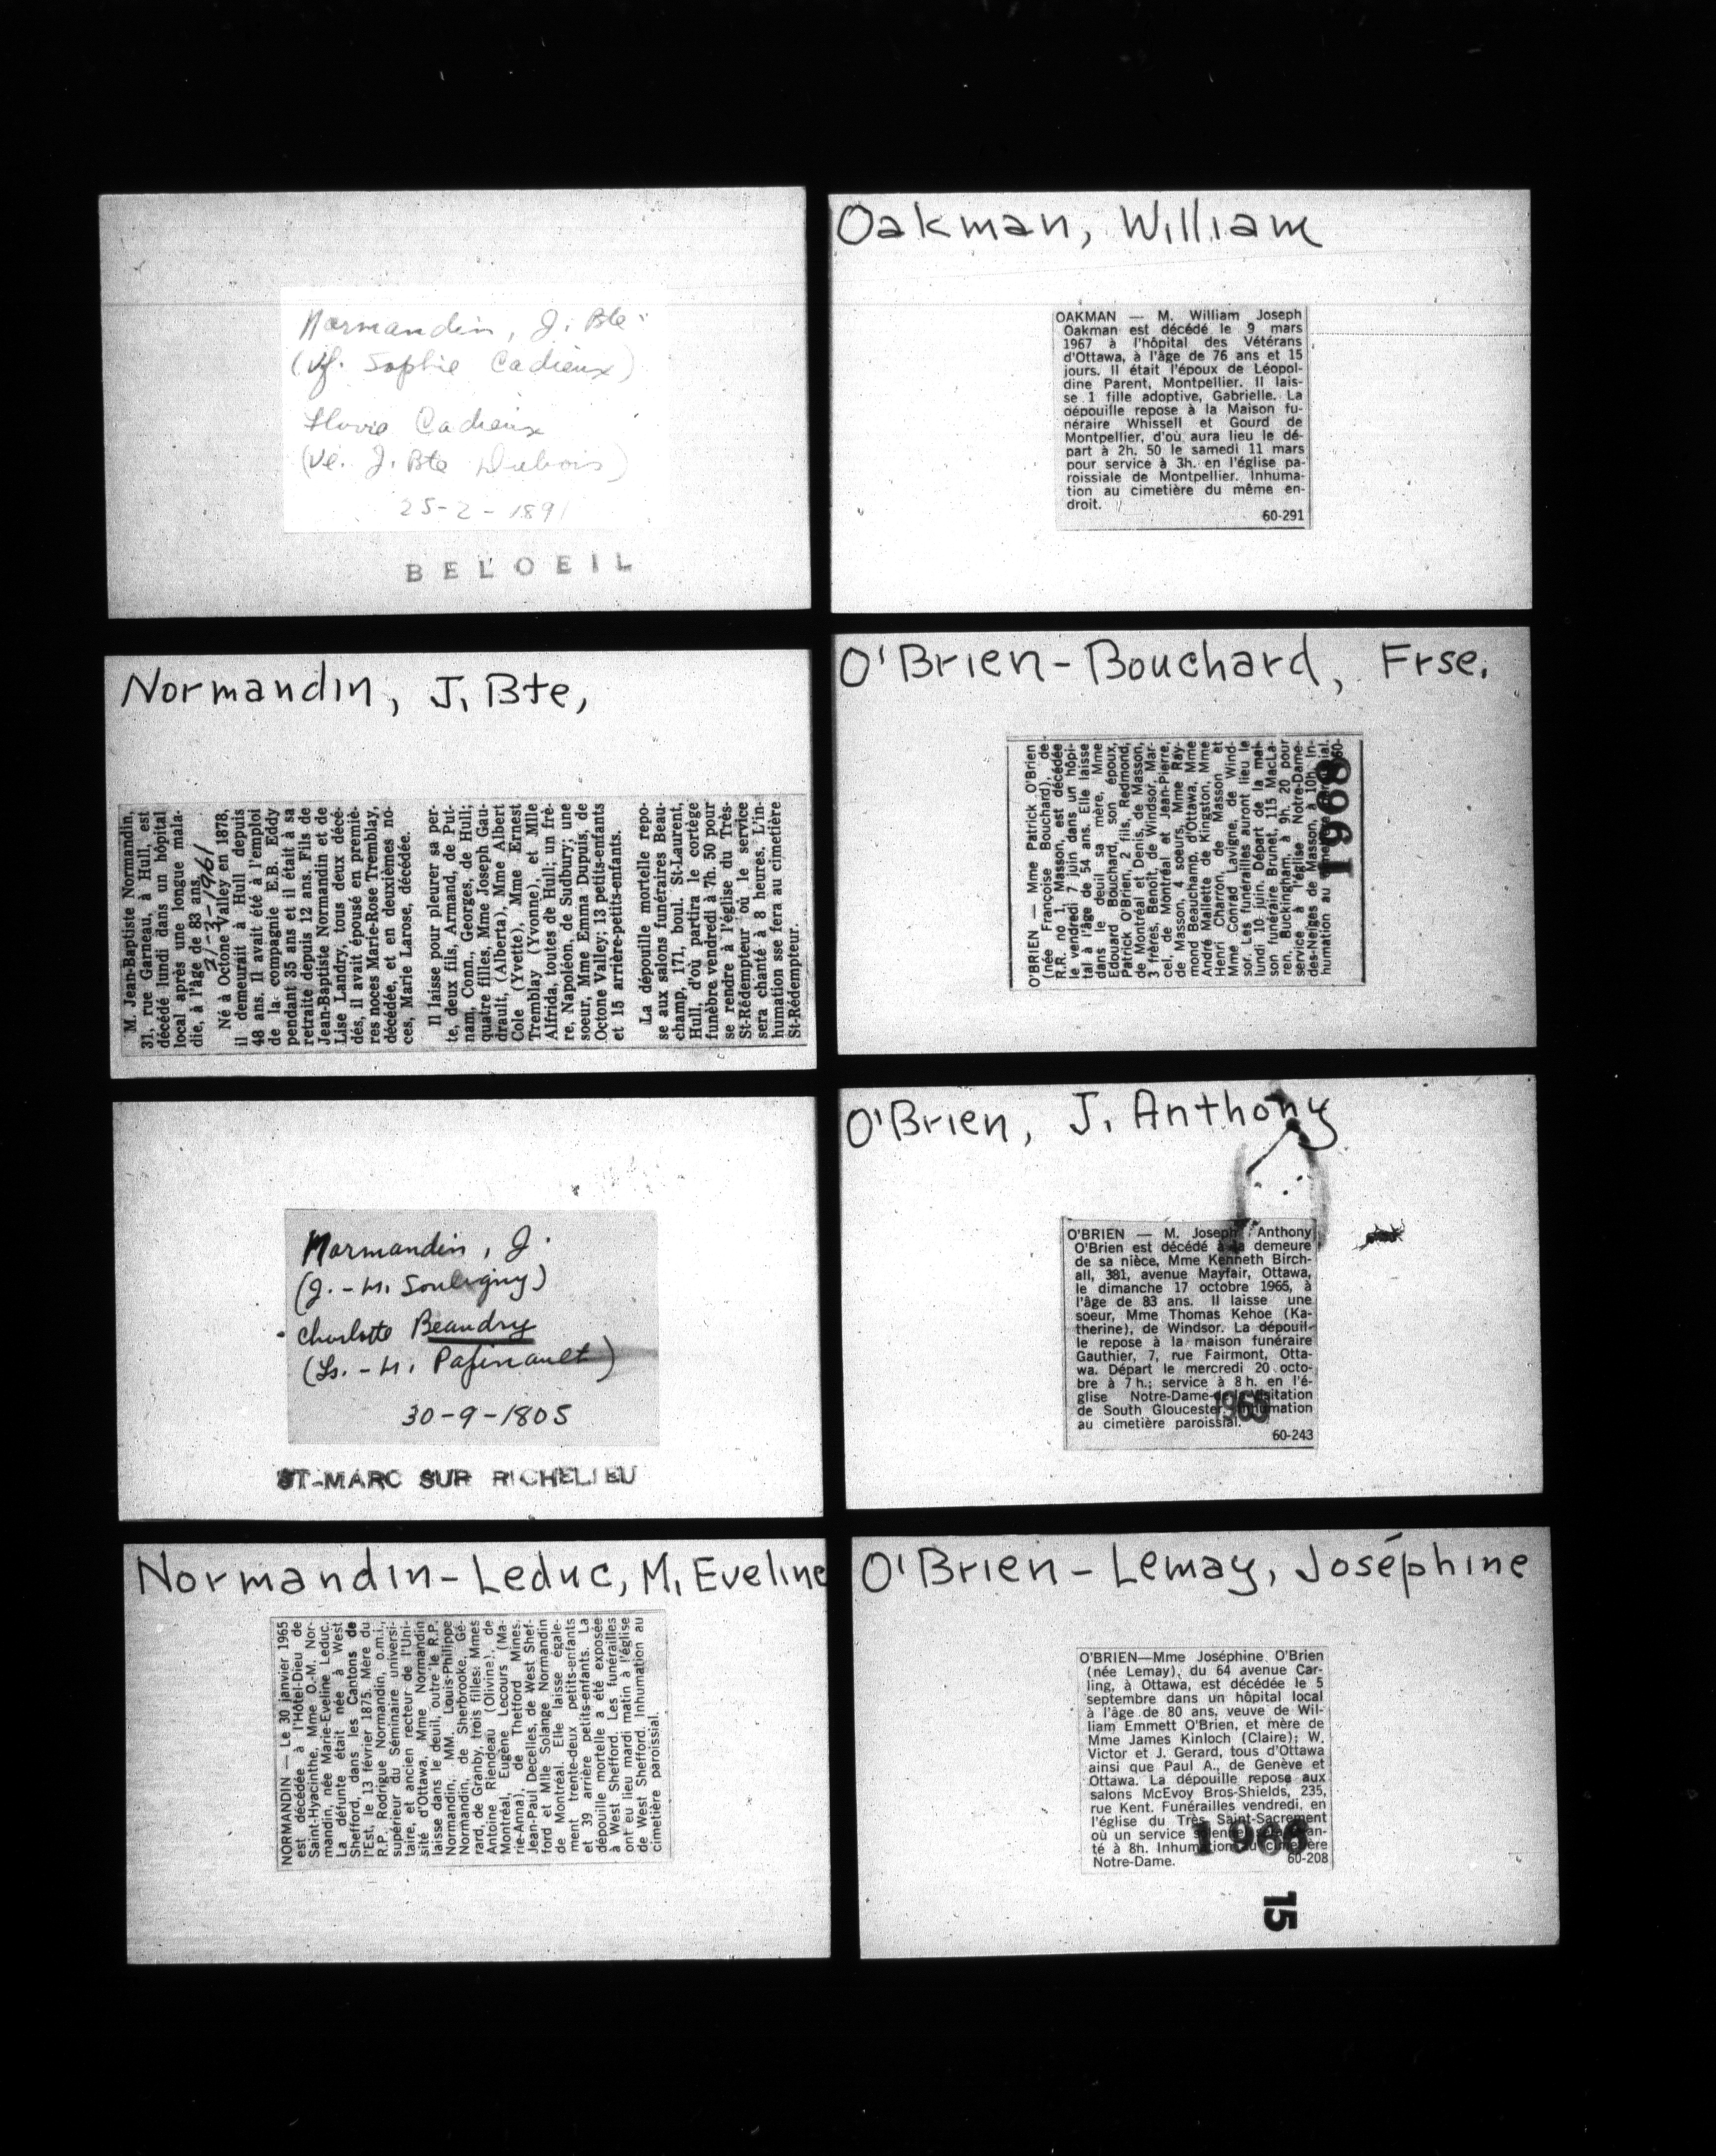 Normandin, J. Bte
(vf. Sophie Cadieux)
Cadieux
(ve. J. Bte Dubois)
25-2-1891
BELOEIL
Normandin, J. Bte,
M. Jean-Baptiste Normandin,
31, rue Garneau, à Hull, est
décédé lundi dans un hôpital
local après une longue mala-
die, à l'âge de 83 ans.
1961
Né à Octone Valley en 1878,
il demeurait à Hull depuis
48 ans. Il avait été à l'emploi
de la compagnie E.B. Eddy
pendant 35 ans et il était à sa
retraite depuis 12 ans. Fils de
Jean-Baptiste Normandin et de
Lise Landry, tous deux décé-
dés, il avait épousé en premiè-
res noces Marie-Rose Tremblay,
décédée, et en deuxièmes no-
ces, Marie Larose, décédée.
Il laisse pour pleurer sa per-
te, deux fils, Armand, de Put-
nam, Conn., Georges, de Hull;
quatre filles, Mme Joseph Gau-
drault, (Alberta), Mme Albert
Cole (Yvette), Mme Ernest
Tremblay (Yvonne), et Mlle
Alfrida, toutes de Hull; un frè-
re, Napoléon, de Sudbury; une
soeur, Mme Emma Dupuis, de
Octone Valley; 13 petits-enfants
et 15 arrière-petits-enfants.
La dépouille mortelle repo-
se aux salons funéraires Beau-
champ, 171, boul. St-Laurent,
Hull, d'où partira le cortège
funèbre vendredi à 7h. 50 pour
se rendre à l'église du Très-
St-Rédempteur où le service
sera chanté à 8 heures. L'in-
humation sse fera au cimetière
St-Rédempteur.
Normandin, J.
(J. - M. Souligny)
Charlotte Beaudry
(Ls. - M. Papinault)
30-9-1805
ST-MARC SUR RICHELIEU
Normandin-Leduc, M. Eveline
NORMANDIN — Le 30 janvier 1965
est décédée à l'Hôtel-Dieu de
Saint-Hyacinthe, Mme O.-M. Nor-
mandin, née Marie-Eveline Leduc.
La défunte était née à West
Shefford, dans les Cantons de
l'Est, le 13 février 1875. Mère du
R.P. Rodrigue Normandin, o.m.i.,
supérieur du Séminaire universi-
taire, et ancien recteur de l'Uni-
sité d'Ottawa, Mme Normandin
laisse dans le deuil, outre le R.P.
Normandin, MM. Louis-Philippe
Normandin, de Sherbrooke, Gé-
rard, de Granby, trois filles: Mmes
Antoine Riendeau (Olivine), de
Montréal, Eugène Lecours (Ma-
rie-Anna), de Thetford Mines,
Jean-Paul Decelles, de West Shef-
ford et Mlle Solange Normandin
de Montréal. Elle laisse égale-
ment trente-deux petits-enfants
et 39 arrière petits-enfants. La
dépouille mortelle a été exposée
à West Shefford. Les funérailles
ont eu lieu mardi matin à l'église
de West Shefford. Inhumation au
cimetière paroissial.
Oakman, William
OAKMAN — M. William Joseph
Oakman est décédé le 9 mars
1967 à l'hôpital des Vétérans
d'Ottawa, à l'âge de 76 ans et 15
jours. Il était l'époux de Léopol-
dine Parent, Montpellier. Il lais-
se 1 fille adoptive, Gabrielle. La
dépouille repose à la Maison fu-
néraire Whissell et Gourd de
Montpellier, d'où aura lieu le dé-
part à 2h. 50 le samedi 11 mars
pour service à 3h. en l'église pa-
roissiale de Montpellier. Inhuma-
tion au cimetière du même en-
droit.
60-291
O'Brien-Bouchard, Frse.
O'BRIEN — Mme Patrick O'Brien
(née Françoise Bouchard), de
R.R. no 1, Masson, est décédée
le vendredi 7 juin dans un hôpi-
tal à l'âge de 54 ans. Elle laisse
dans le deuil sa mère, Mme
Edouard Bouchard, son époux,
Patrick O'Brien, 2 fils, Redmond,
de Montréal et Denis, de Masson,
3 frères, Benoît, de Windsor, Mar-
cel, de Montréal et Jean-Pierre,
de Masson, 4 soeurs, Mme Ray-
mond Beauchamp, d'Ottawa, Mme
André Mallette, de Kingston, Mme
Henri Charron, de Masson et
Mme Conrad Lavigne, de Wind-
sor. Les funérailles auront lieu le
lundi 10 juin. Départ de la mai-
son funéraire Brunet, 115 MacLa-
ren, Buckingham, à 9h. 20 pour
service à l'église Notre-Dame-
des-Neiges de Masson, à 10h. In-
humation au
60-
1968
O'Brien, J. Anthony
O'BRIEN — M. Joseph Anthony
O'Brien est décédé à la demeure
de sa nièce, Mme Kenneth Birch-
all, 381, avenue Mayfair, Ottawa,
le dimanche 17 octobre 1965, à
l'âge de 83 ans. Il laisse une
soeur, Mme Thomas Kehoe (Ka-
therine), de Windsor. La dépouil-
le repose à la maison funéraire
Gauthier, 7, rue Fairmont, Otta-
wa. Départ le mercredi 20 octo-
bre à 7 h.; service à 8 h. en l'é-
glise Notre-Dame-
de South Gloucester. Inhumation
au cimetière paroissial.
60-243
O'Brien-Lemay, Joséphine
O'BRIEN—Mme Joséphine O'Brien
(née Lemay), du 64 avenue Car-
ling, à Ottawa, est décédée le 5
septembre dans un hôpital local
à l'âge de 80 ans, veuve de Wil-
liam Emmett O'Brien, et mère de
Mme James Kinloch (Claire); W.
Victor et J. Gerard, tous d'Ottawa
ainsi que Paul A., de Genève et
Ottawa. La dépouille repose aux
salons McEvoy Bros-Shields, 235,
rue Kent. Funérailles vendredi, en
l'église du Très Saint-Sacrement
où un service
té à 8h. Inhumation au cimetière
Notre-Dame.
60-208
1966
15